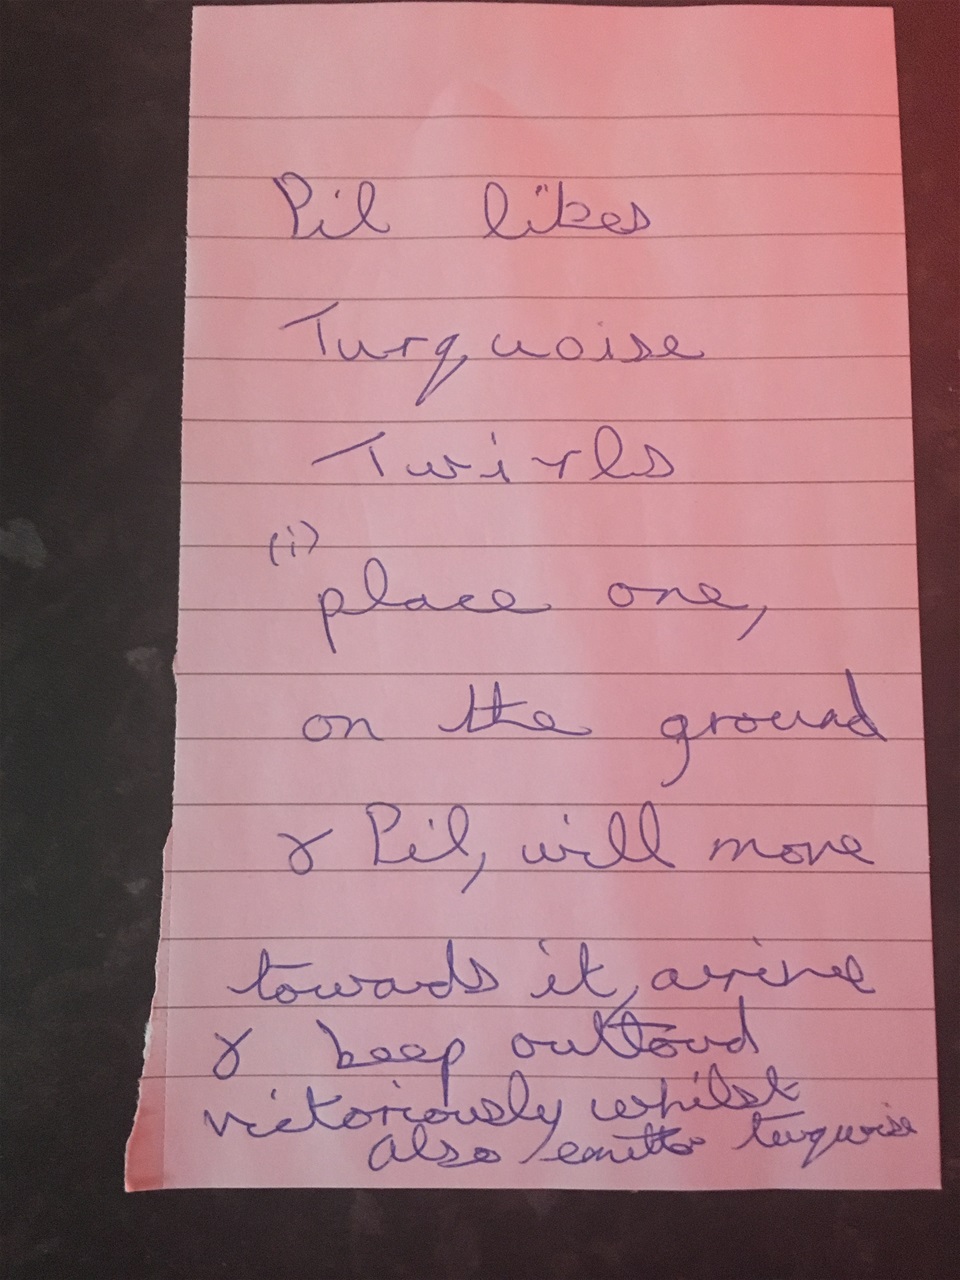 Pil likes
Turquoise
Twirls
(i)
place one,
on the ground
& Pil, will move
towards it, arrive
& beep outloud
victoriously whilst
also turquoise